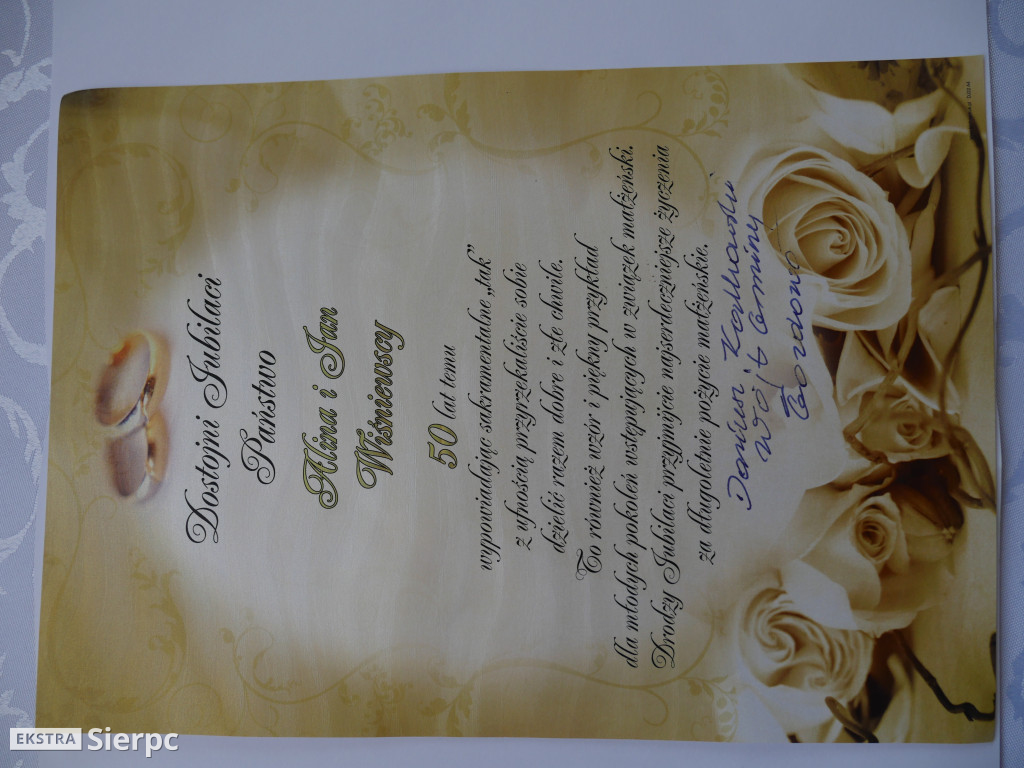 Dostojni Jubilaci
Państwo
Alina i Jan
Wiśniewscy
50 lat temu
wypowiadając sakramentalne „tak”
z ufnością przyrzekaliście sobie
dzielić razem dobre i złe chwile.
To również wzór i piękny przykład
dla młodych pokoleń wstępujących w związek małżeński.
Drodzy Jubilaci przyjmijcie najserdeczniejsze życzenia
za długoletnie pożycie małżeńskie.
Wójt Gminy
Gozdowo
EKSTRA Sierpc